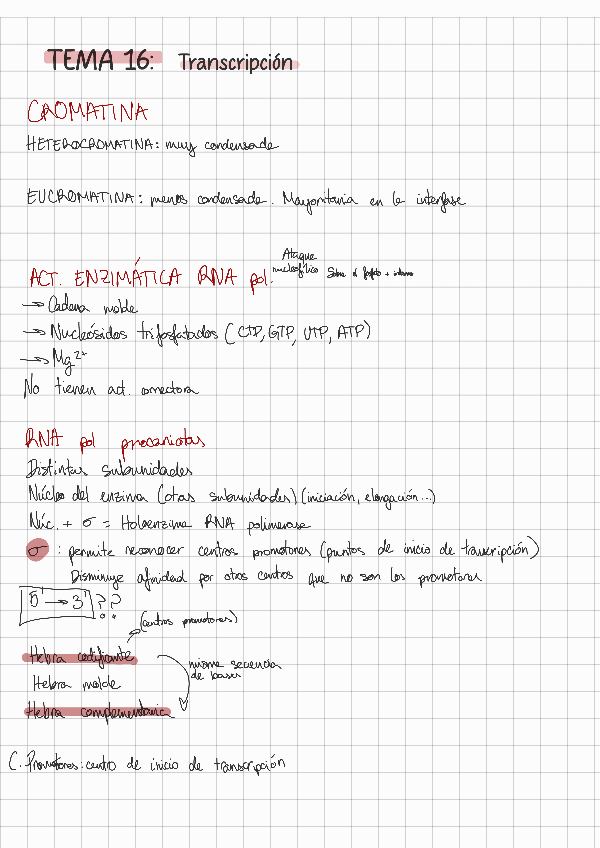 TEMA 16: Transcripción
CROMATINA
HETEROCROMATINA: muy condensade
EUCROMATINA: menos condensade. Mayoritaria en la interfase
ACT. ENZIMÁTICA RNA pol.
Ataque
nucleofílico Sobre el fosfato + interno
→ Cadena molde
→ Nucleósidos trifosfatados (CTP, GTP, UTP, ATP)
→ Mg²⁺
No tienen act. correctora
RNA pol procariotas
Distintas subunidades
Núcleo del enzima (otras subunidades) (iniciación, elongación...)
Núc. + σ = Holoenzima RNA polimerasa
σ : permite reconocer centros promotores (puntos de inicio de transcripción)
Disminuye afinidad por otros centros que no son los promotores
5' → 3' ??
(centros promotores)
Hebra codificante
misma secuencia
de bases
Hebra molde
Hebra complementaria
C. Promotores: centro de inicio de transcripción